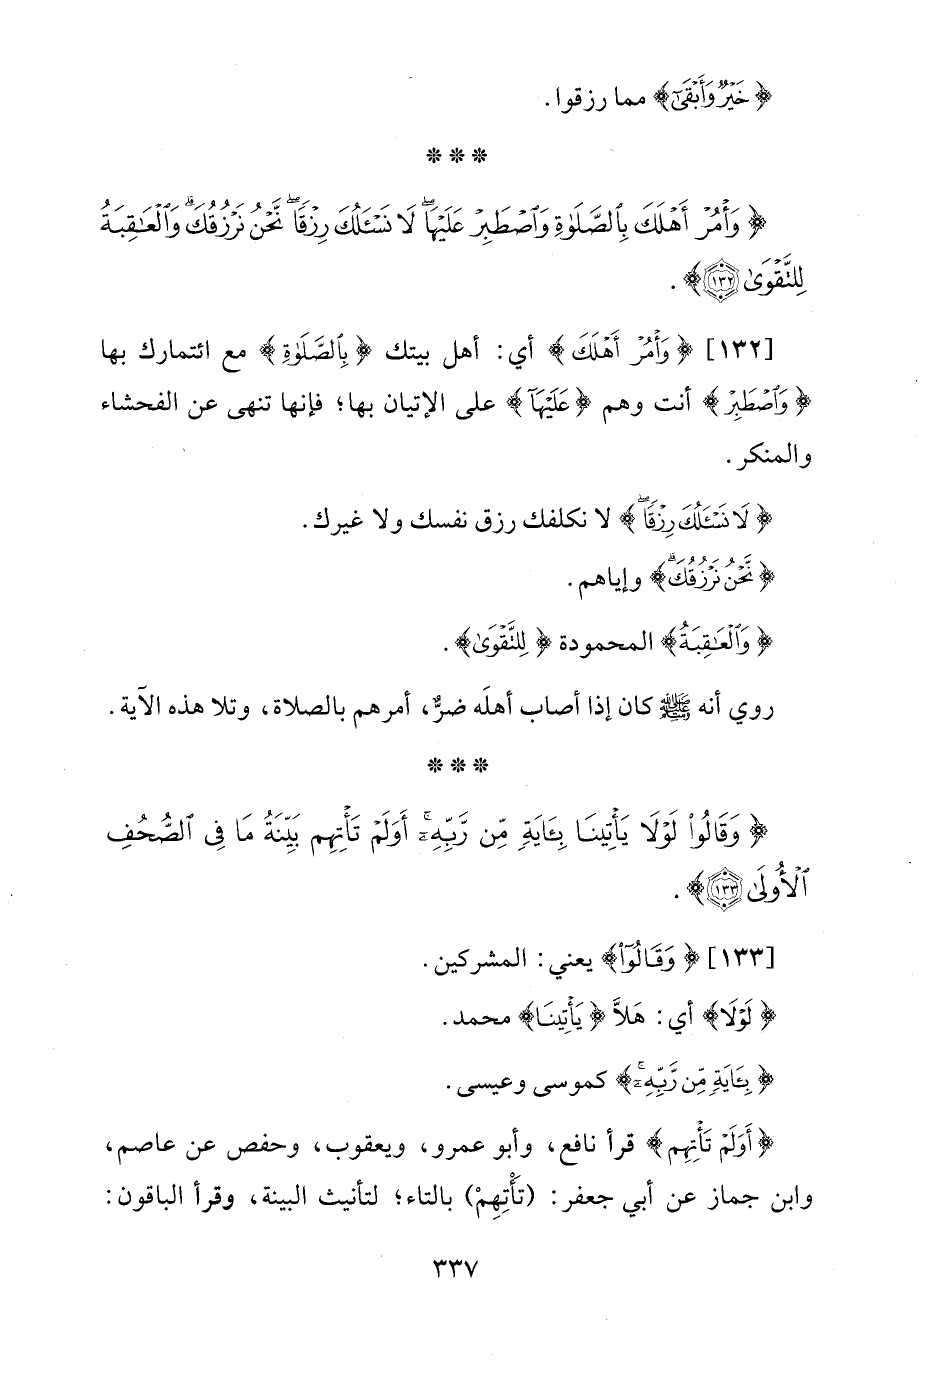 ﴿خَيْرٌ وَأَبْقَىٰ﴾ مما رزقوا.
* * *
﴿وَأْمُرْ أَهْلَكَ بِٱلصَّلَوٰةِ وَٱصْطَبِرْ عَلَيْهَا ۖ لَا نَسْـَٔلُكَ رِزْقًا ۖ نَّحْنُ نَرْزُقُكَ ۗ وَٱلْعَـٰقِبَةُ
لِلتَّقْوَىٰ ١٣٢﴾.
[١٣٢] ﴿وَأْمُرْ أَهْلَكَ﴾ أي: أهل بيتك ﴿بِٱلصَّلَوٰةِ﴾ مع ائتمارك بها
﴿وَٱصْطَبِرْ﴾ أنت وهم ﴿عَلَيْهَآ﴾ على الإتيان بها؛ فإنها تنهى عن الفحشاء
والمنكر.
﴿لَا نَسْـَٔلُكَ رِزْقًا ۖ﴾ لا نكلفك رزق نفسك ولا غيرك.
﴿نَّحْنُ نَرْزُقُكَ ۗ﴾ وإياهم.
﴿وَٱلْعَـٰقِبَةُ﴾ المحمودة ﴿لِلتَّقْوَىٰ﴾.
روي أنه ﷺ كان إذا أصاب أهلَه ضرٌّ، أمرهم بالصلاة، وتلا هذه الآية.
* * *
﴿وَقَالُوا۟ لَوْلَا يَأْتِينَا بِـَٔايَةٍ مِّن رَّبِّهِۦٓ ۚ أَوَلَمْ تَأْتِهِم بَيِّنَةُ مَا فِى ٱلصُّحُفِ
ٱلْأُولَىٰ ١٣٣﴾.
[١٣٣] ﴿وَقَالُوٓا۟﴾ يعني: المشركين.
﴿لَوْلَا﴾ أي: هَلاَّ ﴿يَأْتِينَا﴾ محمد.
﴿بِـَٔايَةٍ مِّن رَّبِّهِۦٓ ۚ﴾ كموسى وعيسى.
﴿أَوَلَمْ تَأْتِهِم﴾ قرأ نافع، وأبو عمرو، ويعقوب، وحفص عن عاصم،
وابن جماز عن أبي جعفر: (تَأْتِهِمْ) بالتاء؛ لتأنيث البينة، وقرأ الباقون:
٣٣٧